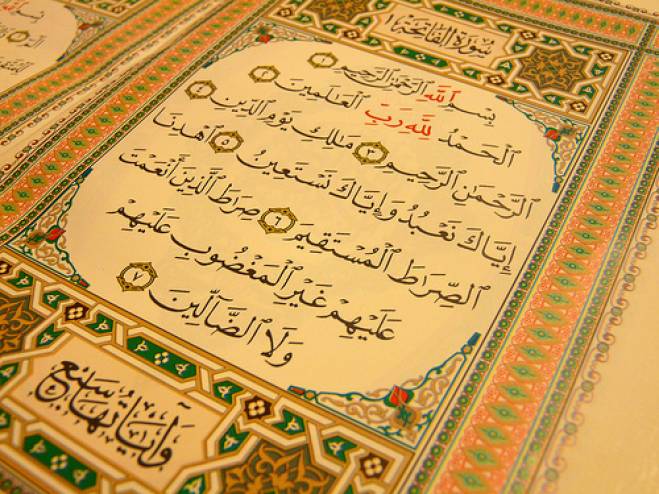 سُورَةُ ٱلْفَاتِحَةِ ١
بِسْمِ ٱللَّهِ ٱلرَّحْمَٰنِ ٱلرَّحِيمِ ١
ٱلْحَمْدُ لِلَّهِ رَبِّ ٱلْعَٰلَمِينَ ٢
ٱلرَّحْمَٰنِ ٱلرَّحِيمِ ٣ مَٰلِكِ يَوْمِ ٱلدِّينِ ٤
إِيَّاكَ نَعْبُدُ وَإِيَّاكَ نَسْتَعِينُ ٥ ٱهْدِنَا
ٱلصِّرَٰطَ ٱلْمُسْتَقِيمَ ٦ صِرَٰطَ ٱلَّذِينَ أَنْعَمْتَ
عَلَيْهِمْ غَيْرِ ٱلْمَغْضُوبِ عَلَيْهِمْ
وَلَا ٱلضَّآلِّينَ ٧
وَآيَاتُهَا سَبْع